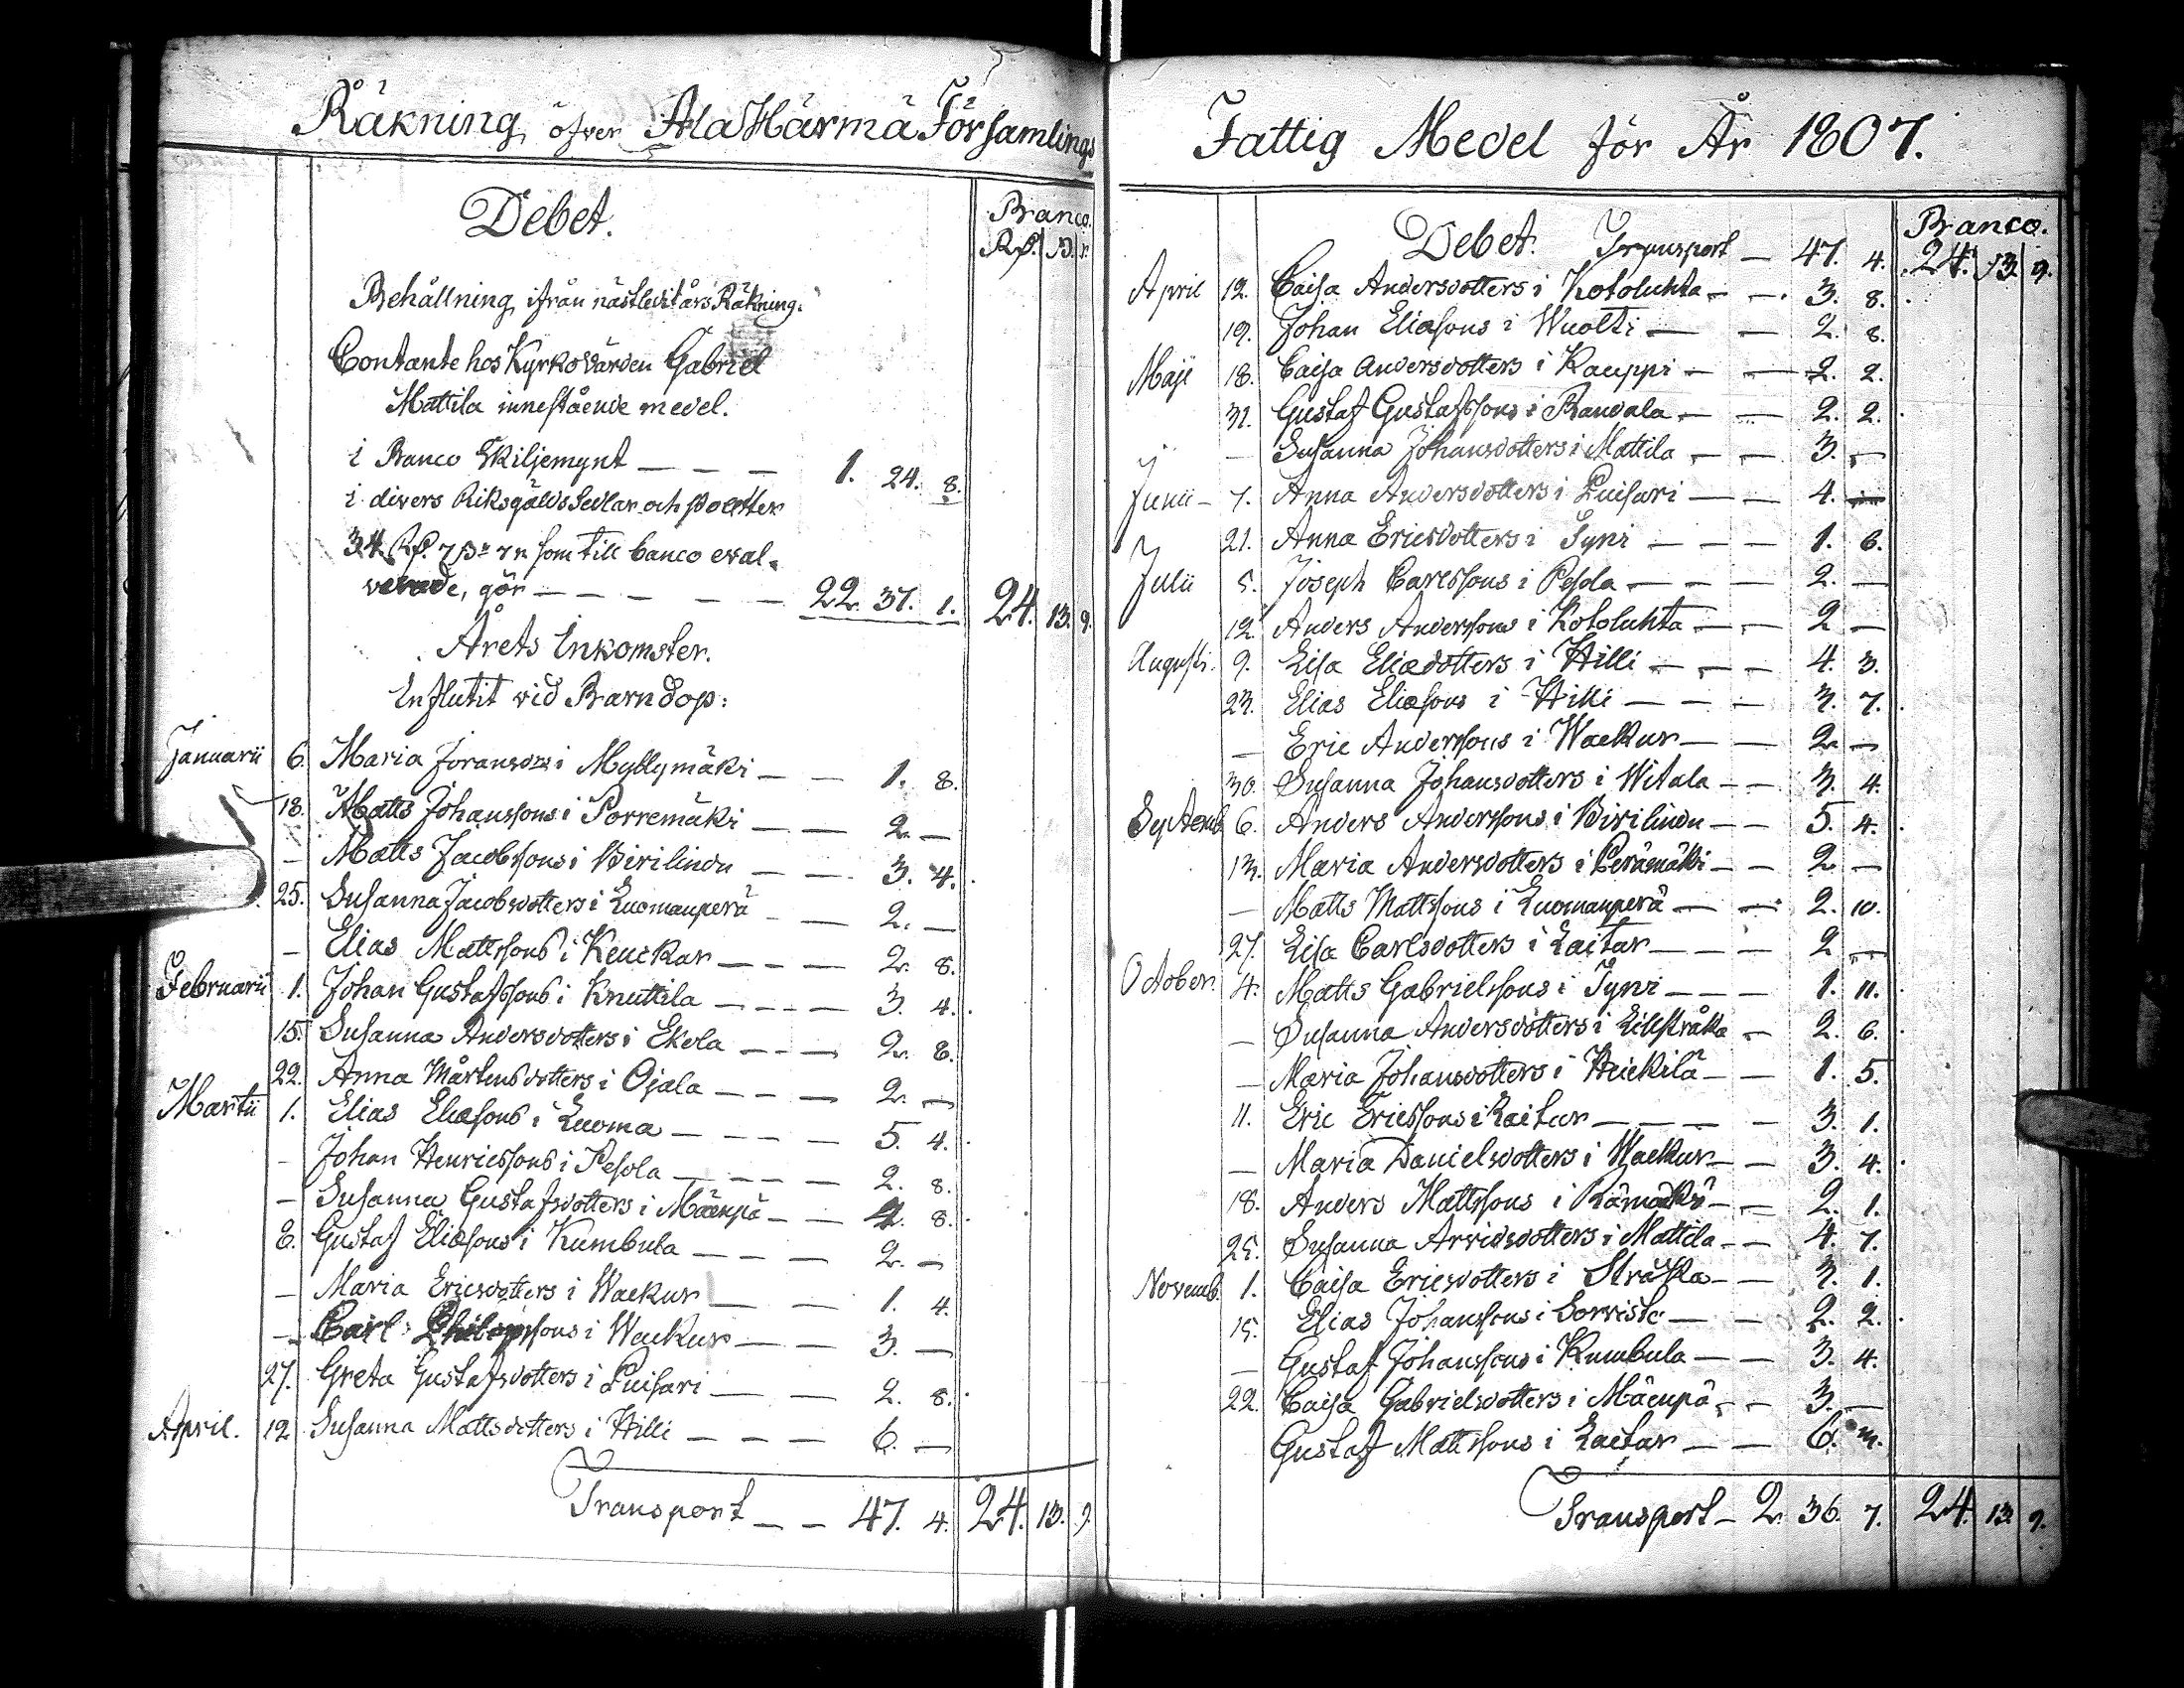 Räkning öfver Ala Härmä Församlings
Debet.
Banco.
Rd. ß. r.
Behållning ifrån nästledit års Räkning.
Contante hos Kyrkovärden Gabriel
Mattila innestående medel.
i Banco Skiljemynt — — — 1. 24. 8.
i divers Riksgälds Sedlar och
34 Rd. 7 ß 7 r som till banco eval-
verade, gör — — — — — 22. 37. 1. 24. 13. 9.
Årets Inkomster.
Influtit vid Barndop:
Januarii 6. Maria Joransdrs i Myllymäki — — 1. 8.
18. Matts Johanssons i Porremäki — — 2. —
— Matts Jacobssons i Birilindu — — 3. 4.
25. Susanna Jacobsdotters i Luomanperä — — 2. —
— Elias Mattssons i Keuckar — — — 2. 8.
Februarii 1. Johan Gustafssons i Knuttila — — — 3. 4.
15. Susanna Andersdotters i Ekola — — — 2. 8.
22. Anna Mårtensdotters i Ojala — — — 2. —
Martii 1. Elias Eliæsons i Luoma — — — — 5. 4.
— Johan Henricssons i Pesola — — — — 2. 8.
— Susanna Gustafsdotters i Mäenpä — — 2. 8.
8. Gustaf Eliæsons i Kumbula — — — 2. —
— Maria Ericsdotters i Wackur — — 1. 4.
— Carl Philipssons i Wackur — — 3. —
27. Greta Gustafsdotters i Luisari — — 2. 8.
April. 12. Susanna Mattsdotters i Hilli — — — 6. —
Transport — — 47. 4. 24. 13. 9.
Fattig Medel för År 1807.
Banco.
Debet. Transport — 47. 4. 24. 13. 9.
April 12. Caisa Andersdotters i Kotoluhta — — 3. 8.
19. Johan Eliæsons i Wuolti — — 2. 8.
Maji 18. Caisa Andersdotters i Kauppi — — 2. 2.
31. Gustaf Gustafssons i Bandala — — 2. 2.
— Susanna Johansdotters i Mattila — — 3. —
Junii — 7. Anna Andersdotters i Luisari — — 4. —
21. Anna Ericsdotters i Tyni — — — 1. 6.
Julii 5. Joseph Carlssons i Pesola — — — 2. —
12. Anders Anderssons i Kotoluhta — — 2 —
Augusti. 9. Lisa Eliædotters i Hilli — — — 4. 3.
23. Elias Eliæsons i Hilli — — — 3. 7.
— Eric Anderssons i Wackur — — 2. —
30. Susanna Johansdotters i Witala — — 3. 4.
Septemb. 6. Anders Anderssons i Birilindu — — 5. 4.
13. Maria Andersdotters i Perämäki — — 2 —
— Matts Mattssons i Luomanperä — — 2. 10.
27. Lisa Carlsdotters i Laitar — — — 2 —
October. 4. Matts Gabrielssons i Tyni — — — 1. 11.
— Susanna Andersdotters i Lillstråka — 2. 6.
— Maria Johansdotters i Heickilä — — 1. 5.
11. Eric Ericssons i Laitar — — — — 3. 1.
— Maria Danielsdotters i Wackur — — 3. 4.
18. Anders Mattssons i Rämäki — — 2. 1.
25. Susanna Arvidsdotters i Mattila — — 4. 7.
Novemb. 1. Caisa Ericsdotters i Stråka — — 3. 1.
15. Elias Johanssons i Sorvisto — — 2. 2.
— Gustaf Johanssons i Kumbula — — 3. 4.
22. Caisa Gabrielsdotters i Mäenpä — — 3. —
Gustaf Mattssons i Laitar — — 6.
Transport — 2. 36. 7. 24. 13. 9.